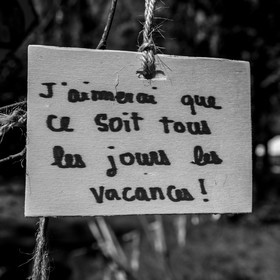 J'aimerai que
ce soit tous
les jours les
vacances !